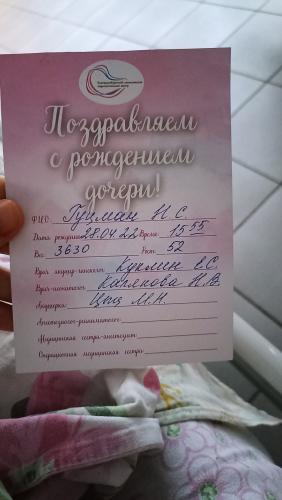 Поздравляем
с рождением
дочери!
Ф.И.О. Гуцман Н. С.
Дата рождения 28.04.22 Время 15 55
Вес 3630 Рост 52
Врач акушер-гинеколог Куклин Е.С.
Врач-неонатолог Калякова Н.В.
Акушерка Цыц М.Н.
Анестезиолог-реаниматолог
Медицинская сестра-анестезист
Операционная медицинская сестра